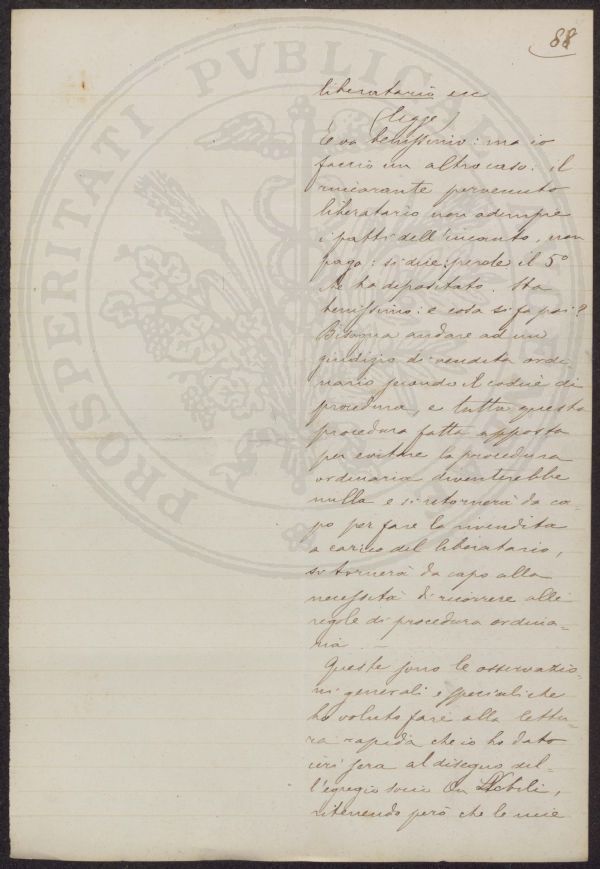 88
liberatario ecc
(legge)
E va benissimo: ma io
faccio un altro caso: il
rincarante pervenuto
liberatario non adempie
i patti dell'incanto, non
paga: si dice: perde il 5º
che ha depositato. Sta
benissimo: e cosa si fa poi?
Bisogna andare ad un
giudizio di vendita ordi
nario secondo il codice di
procedura, e tutta questa
procedura fatta apposta
per evitare la procedura
ordinaria diventerebbe
nulla e si ritornerà da ca-
po per fare la rivendita
a carico del liberatario,
si tornerà da capo alla
necessità di ricorrere alle
regole di procedura ordina-
ria.
Queste sono le osservazio-
ni generali e speciali che
ho voluto fare alla lettu-
ra rapida che io ho dato
ieri sera al disegno del-
l'egregio socio On Nobili,
ritenendo però che le mie
PROSPERITATI PVBLICAE